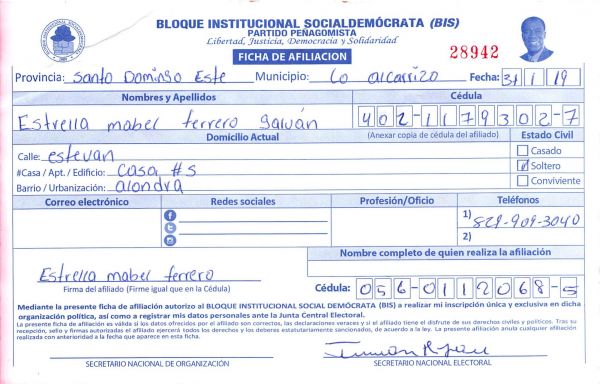 BLOQUE INSTITUCIONAL SOCIALDEMÓCRATA (BIS)
PARTIDO PEÑAGOMISTA
Libertad, Justicia, Democracia y Solidaridad
FICHA DE AFILIACION
28942
Provincia: Santo Domingo Este Municipio: Lo alcarrizo Fecha: 31/1/19
Nombres y Apellidos Cédula
Estrella mabel ferrero galván 402-1179302-7
Domicilio Actual (Anexar copia de cédula del afiliado) Estado Civil
Calle: estevan Casado
#Casa / Apt. / Edificio: Casa #5 Soltero
Barrio / Urbanización: alondra Conviviente
Correo electrónico Redes sociales Profesión/Oficio Teléfonos
1) 829-909-3040
2)
Nombre completo de quien realiza la afiliación
Estrella mabel ferrero
Firma del afiliado (Firme igual que en la Cédula) Cédula: 056-0112068-5
Mediante la presente ficha de afiliación autorizo al BLOQUE INSTITUCIONAL SOCIAL DEMÓCRATA (BIS) a realizar mi inscripción única y exclusiva en dicha
organización política, así como a registrar mis datos personales ante la Junta Central Electoral.
La presente ficha de afiliación es válida si los datos ofrecidos por el afiliado son correctos, las declaraciones veraces y si el afiliado tiene el disfrute de sus derechos civiles y políticos. Tras su
recepción, sello y firmas autorizadas el afiliado ejercerá todos los derechos y los deberes estatutariamente sancionados, de acuerdo a la ley. La presente afiliación anula cualquier afiliación
realizada con anterioridad a la fecha que aparece en esta ficha.
SECRETARIO NACIONAL DE ORGANIZACIÓN SECRETARIO NACIONAL ELECTORAL